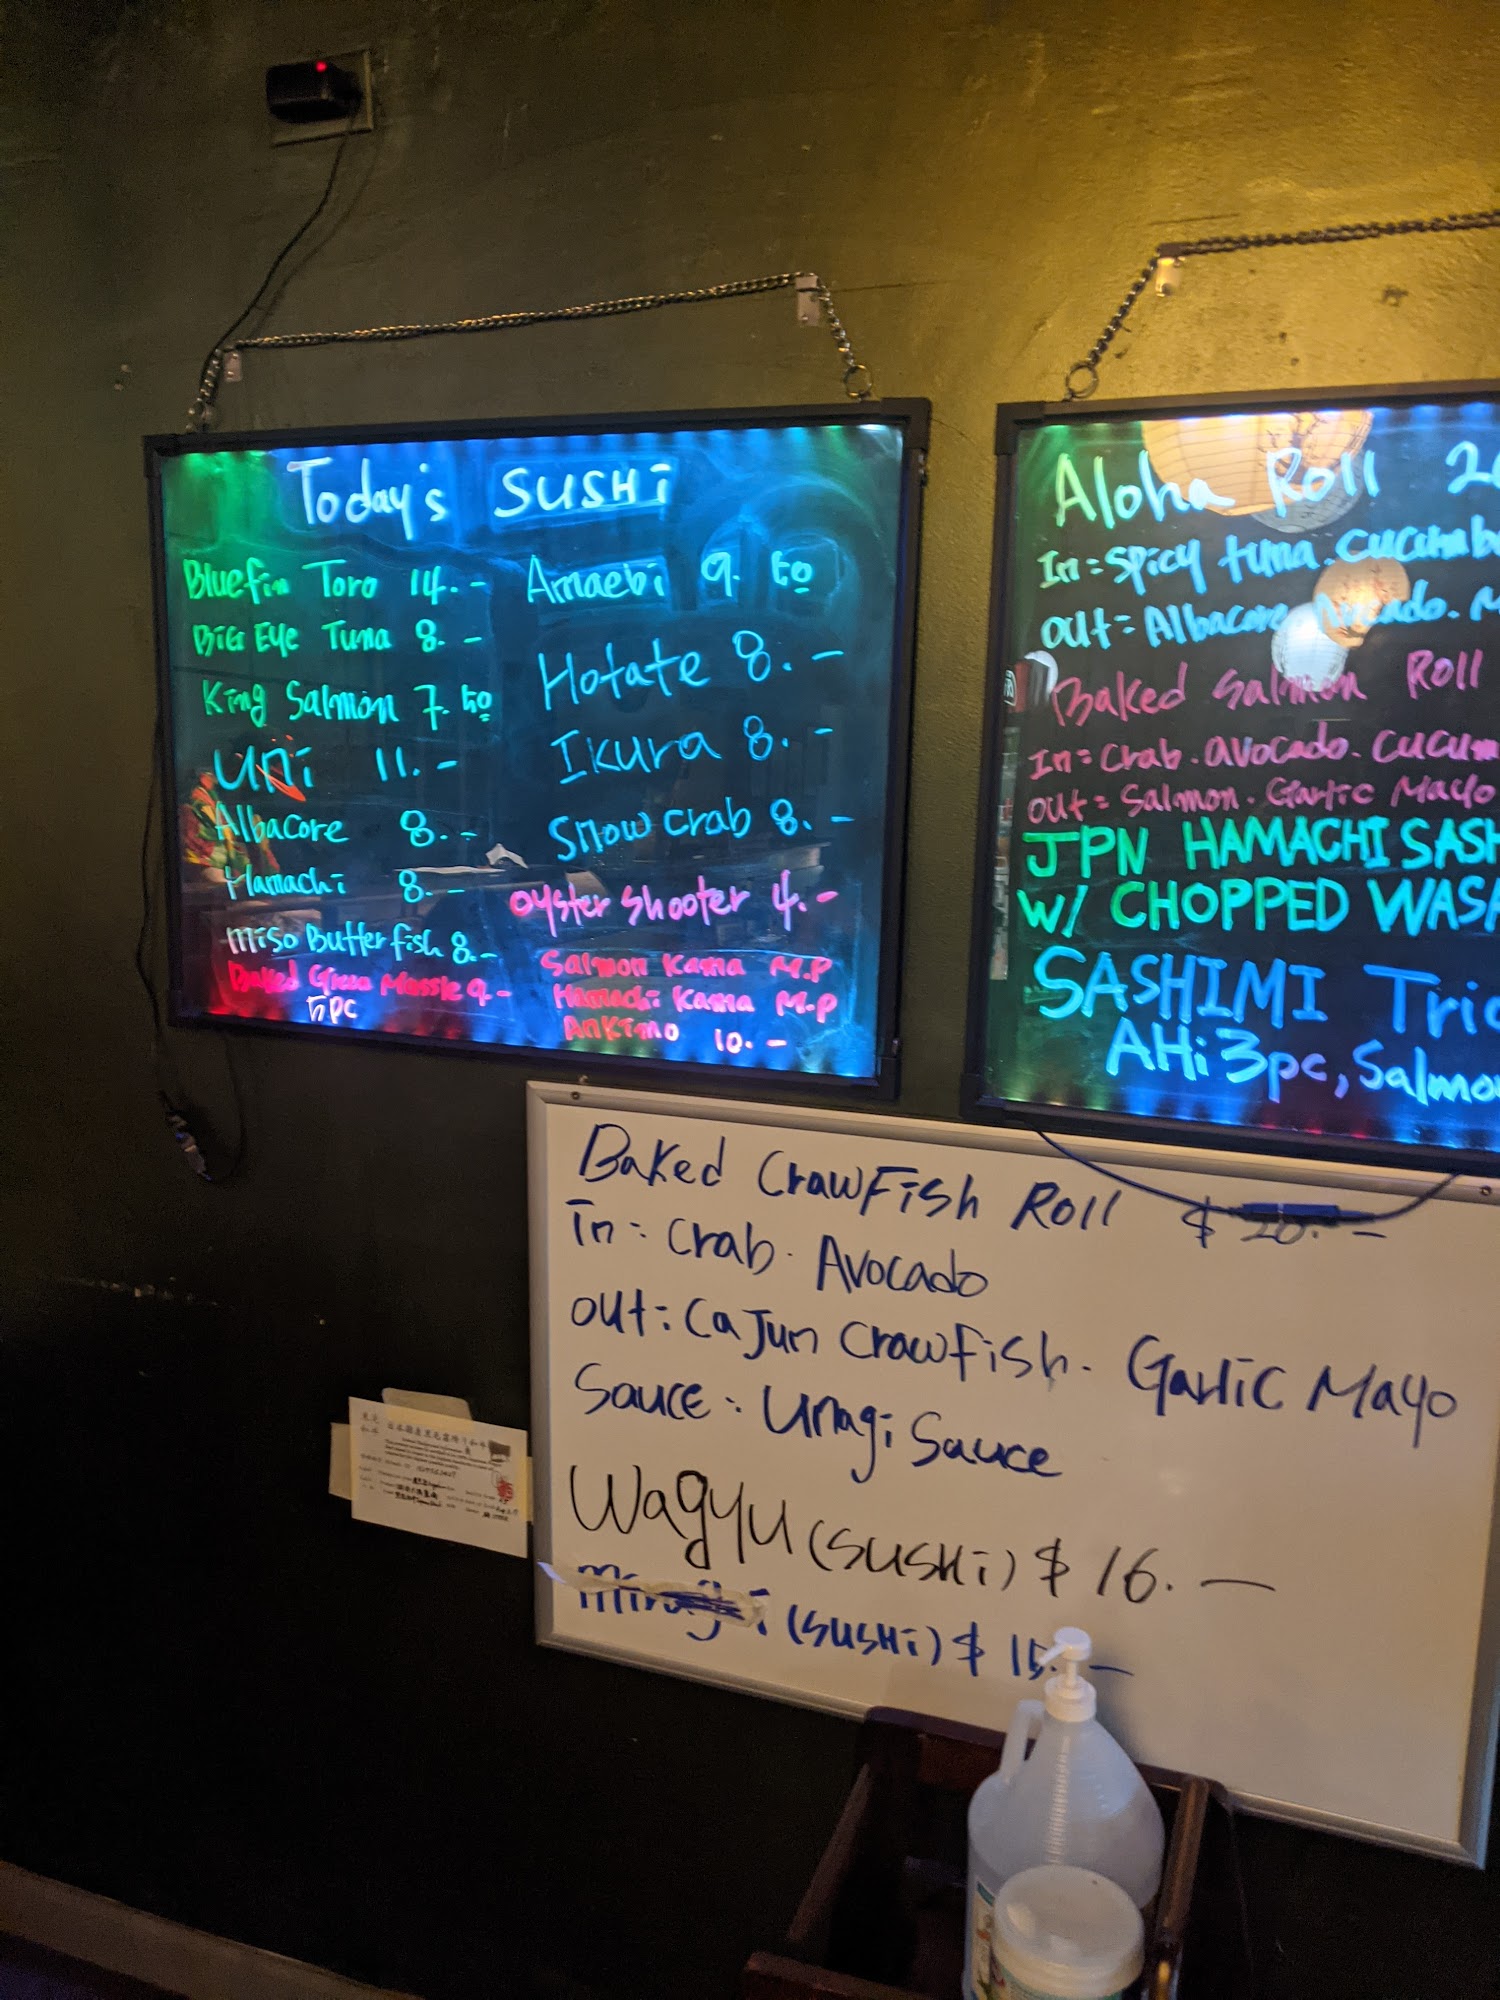 Today's SUSHi
Bluefin Toro 14.-
BiG Eye Tuna 8.-
King Salmon 7.50
Uni 11.-
Albacore 8.-
Hamachi 8.-
Miso Butterfish 8.-
Baked Green Mussle 9-
5pc
Amaebi 9.50
Hotate 8.-
Ikura 8.-
Snow crab 8.-
oyster shooter 4.-
Salmon Kama M.P
Hamachi Kama M.P
Ankimo 10.-
Aloha Roll
In = Spicy tuna. cucumb
out = Albacore Avocado.
Baked Salmon Roll
In = Crab. avocado. cucum
out = Salmon. Garlic Mayo
JPN HAMACHI SASH
W/ CHOPPED WASA
SASHIMI Trio
AHi 3pc, Salmo
Baked Crawfish Roll $ 20.-
In: Crab. Avocado
out: Cajun Crawfish. Garlic Mayo
Sauce: Unagi Sauce
Wagyu (SUSHi) $ 16.-
(SUSHi) $ 15.-